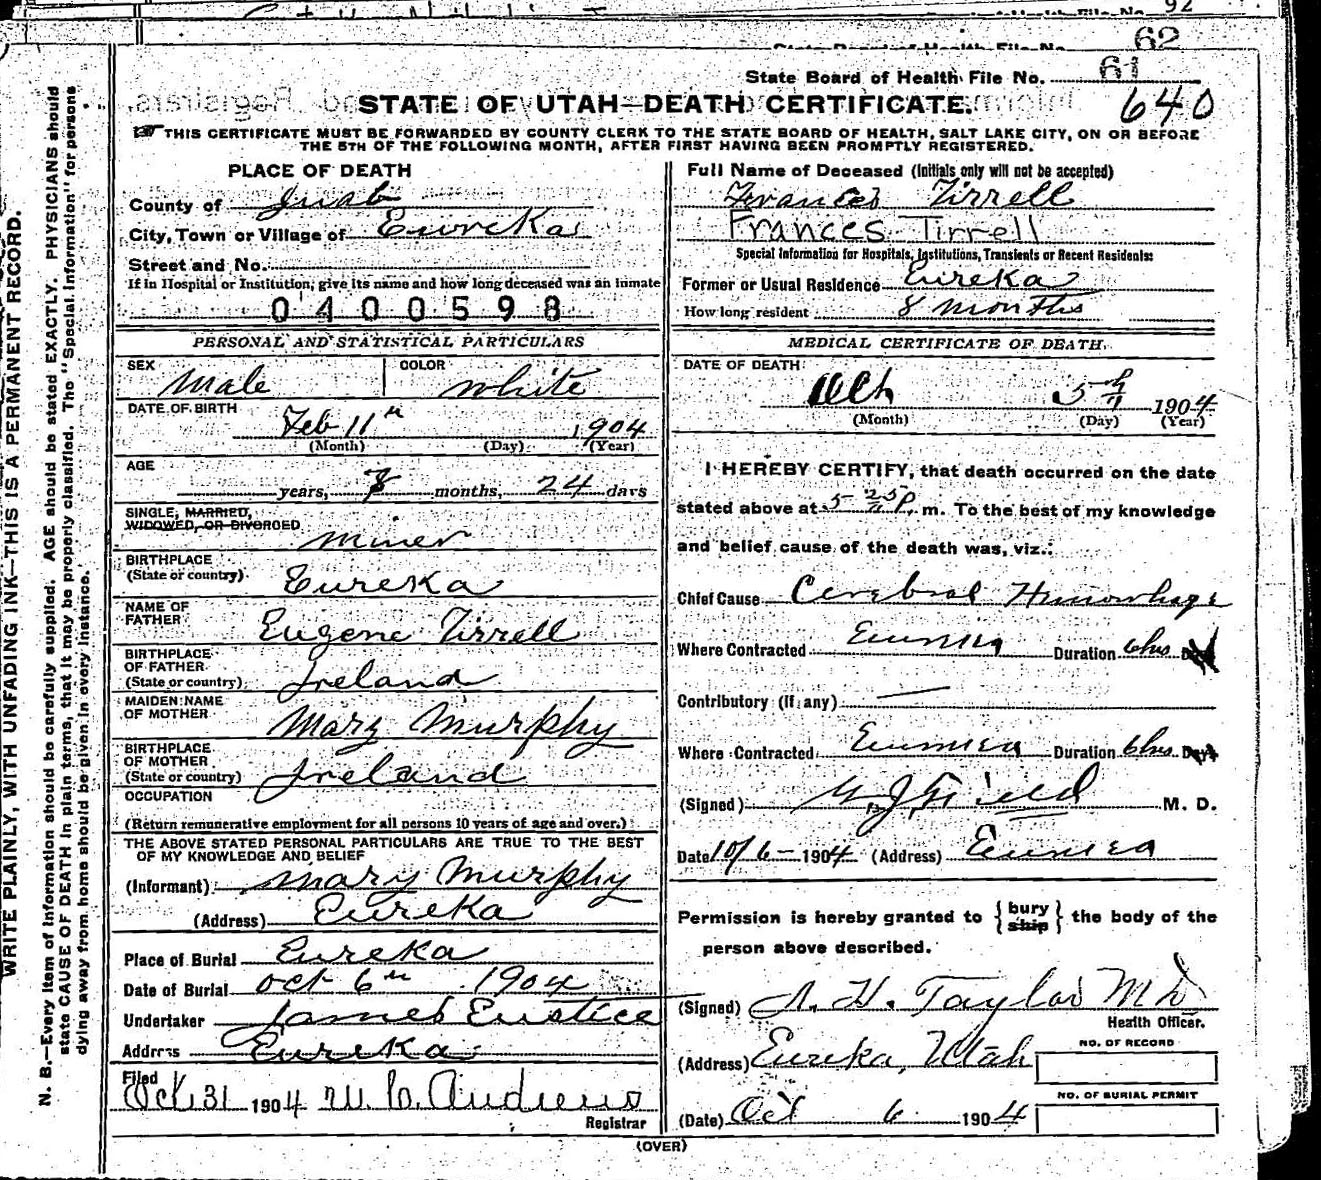 92
62
State Board of Health File No. 61
STATE OF UTAH—DEATH CERTIFICATE.
640
THIS CERTIFICATE MUST BE FORWARDED BY COUNTY CLERK TO THE STATE BOARD OF HEALTH, SALT LAKE CITY, ON OR BEFORE
THE 5TH OF THE FOLLOWING MONTH, AFTER FIRST HAVING BEEN PROMPTLY REGISTERED.
WRITE PLAINLY, WITH UNFADING INK—THIS IS A PERMANENT RECORD.
N. B.—Every item of information should be carefully supplied. AGE should be stated EXACTLY. PHYSICIANS should
state CAUSE OF DEATH in plain terms, that it may be properly classified. The "Special Information" for persons
dying away from home should be given in every instance.
PLACE OF DEATH
County of Juab
City, Town or Village of Eureka
Street and No.
If in Hospital or Institution, give its name and how long deceased was an inmate
0400598
PERSONAL AND STATISTICAL PARTICULARS
SEX Male COLOR White
DATE OF BIRTH Feb 11th 1904
(Month) (Day) (Year)
AGE
years, 7 months, 24 days
SINGLE, MARRIED,
WIDOWED, OR DIVORCED
Miner
BIRTHPLACE
(State or country) Eureka
NAME OF
FATHER Eugene Tirrell
BIRTHPLACE
OF FATHER
(State or country) Ireland
MAIDEN NAME
OF MOTHER Mary Murphy
BIRTHPLACE
OF MOTHER
(State or country) Ireland
OCCUPATION
(Return remunerative employment for all persons 10 years of age and over.)
THE ABOVE STATED PERSONAL PARTICULARS ARE TRUE TO THE BEST
OF MY KNOWLEDGE AND BELIEF
(Informant) Mary Murphy
(Address) Eureka
Place of Burial Eureka
Date of Burial Oct 6th 1904
Undertaker James Eustice
Address Eureka
Filed
Oct. 31 1904 W. C. Andrews
Registrar
Full Name of Deceased (Initials only will not be accepted)
Frances Tirrell
Frances Tirrell
Special Information for Hospitals, Institutions, Transients or Recent Residents:
Former or Usual Residence Eureka
How long resident 8 months
MEDICAL CERTIFICATE OF DEATH.
DATE OF DEATH
Oct 5th 1904
(Month) (Day) (Year)
I HEREBY CERTIFY, that death occurred on the date
stated above at 5 25 P. m. To the best of my knowledge
and belief cause of the death was, viz.:
Chief Cause Cerebral Hemorhage
Where Contracted Eureka Duration 6 hrs Days
Contributory (if any) —
Where Contracted Eureka Duration 6 hrs Days
(Signed) Field M. D.
Date 10/6—1904 (Address) Eureka
Permission is hereby granted to { bury ship } the body of the
person above described.
(Signed) A. H. Taylor M D
Health Officer.
(Address) Eureka, Utah
NO. OF RECORD
(Date) Oct 6 1904
NO. OF BURIAL PERMIT
(OVER)